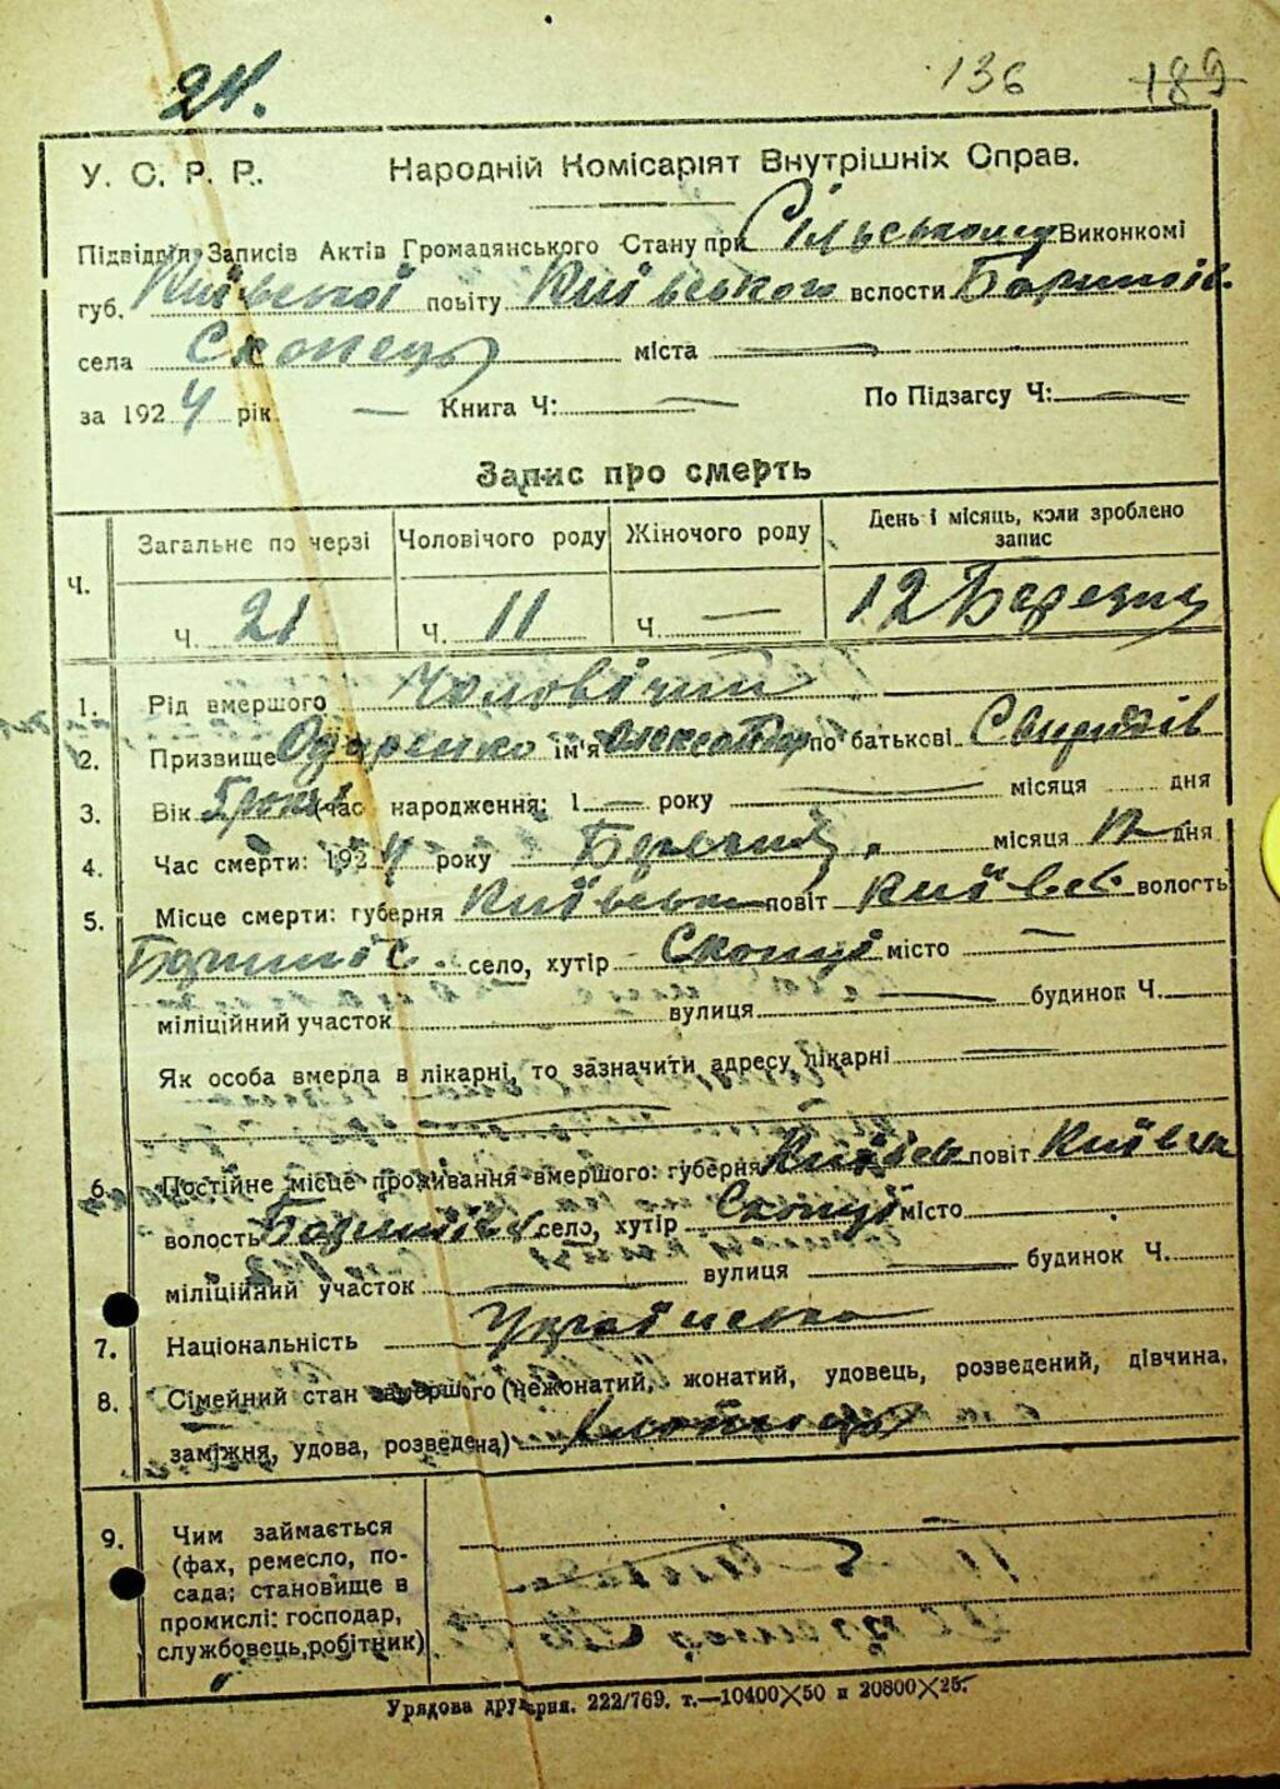 21.
136 189
У. С. Р. Р. Народній Комісаріят Внутрішніх Справ.
Підвідділ Записів Актів Громадянського Стану при Сільському Виконкомі
губ. Київської повіту Київського волости Бориспіл.
села Скопець міста —
за 1924 рік — Книга Ч: — По Підзагсу Ч: —
Запис про смерть
Ч. Загальне по черзі Чоловічого роду Жіночого роду День і місяць, коли зроблено запис
Ч. 21 Ч. 11 Ч. — 12 Березня
1. Рід вмершого Чоловічий
2. Призвище Одаренко ім'я Олександр по батькові
3. Вік роки (час народження: 1 — року — місяця дня
4. Час смерти: 1924 року Березня місяця 12 дня
5. Місце смерти: губерня Київська повіт Київсь. волость
Бориспіл. село, хутір Скопці місто —
міліційний участок вулиця — будинок Ч.
Як особа вмерла в лікарні, то зазначити адресу лікарні —
6. Постійне місце проживання вмершого: губерня Київськ повіт Київськ
волость село, хутір Скопці місто
міліційний участок — вулиця — будинок Ч.
7. Національність Українська
8. Сімейний стан вмершого (нежонатий, жонатий, удовець, розведений, дівчина,
заміжня, удова, розведена)
9. Чим займається
(фах, ремесло, по-
сада; становище в
промислі: господар,
службовець, робітник)
Урядова друкарня. 222/769. т.—10400×50 и 20800×25.